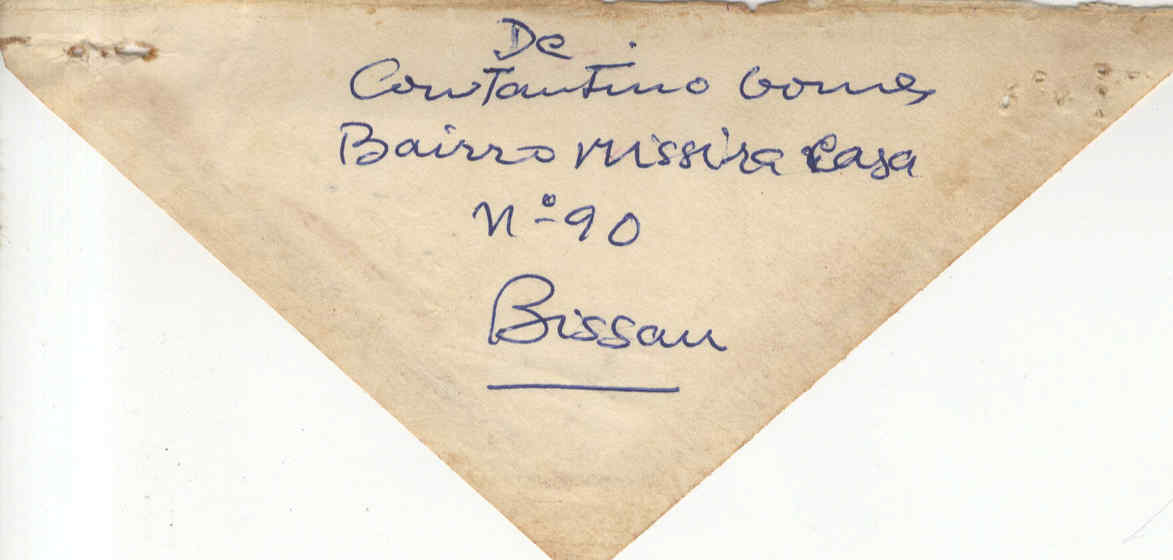 De
Constantino Gomes
Bairro Missira Casa
Nº 90
Bissau